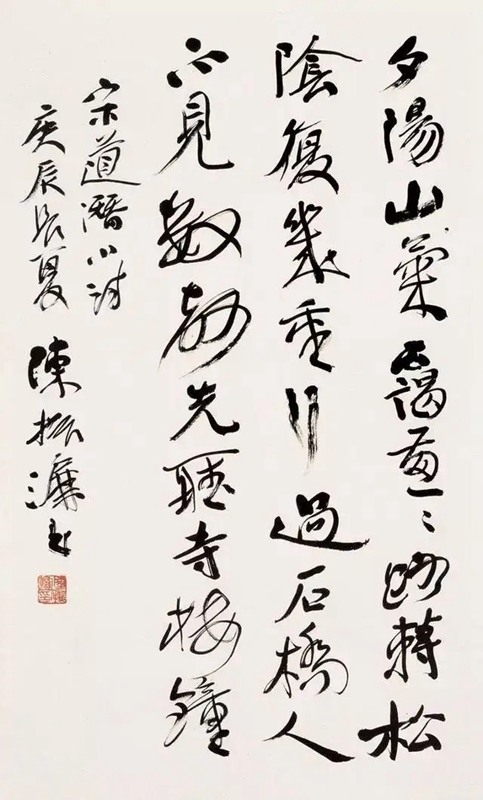 夕陽山氣靄〻路轉松
陰復幾重行過石橋人
不見數聲先聽寺樓鐘
宋道潛小詩
庚辰長夏 陳振濂書